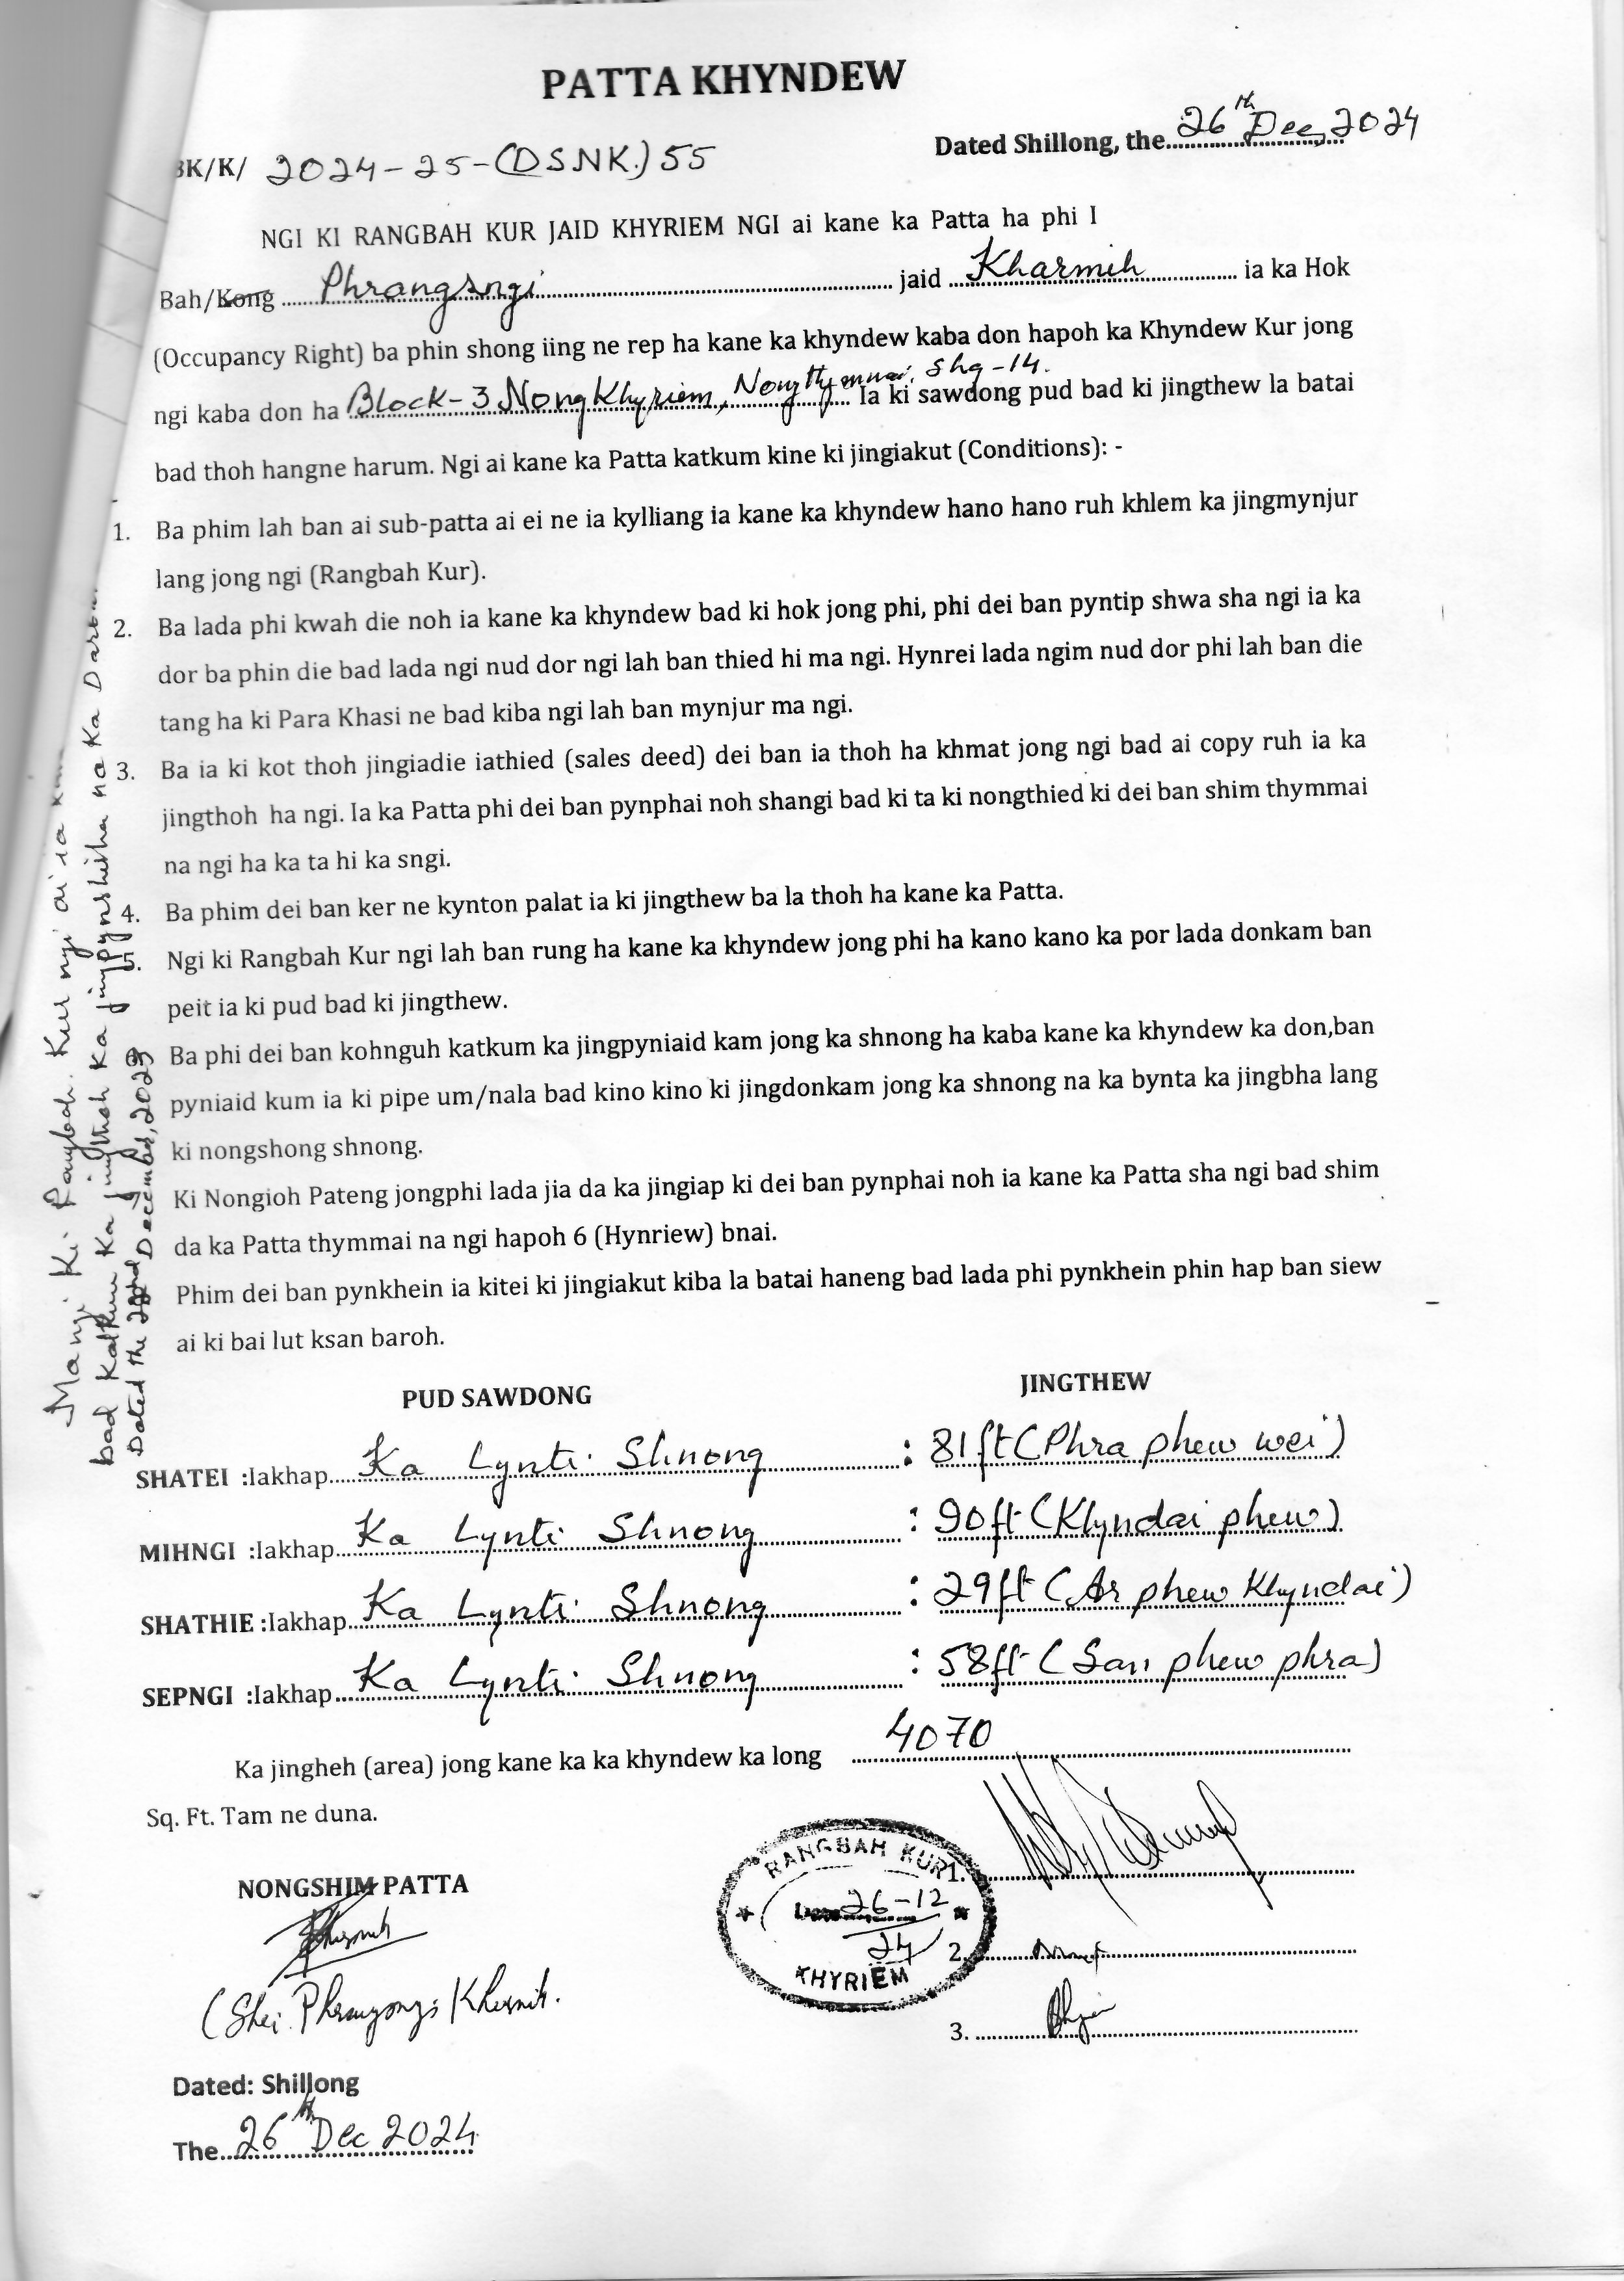 PATTA KHYNDEW
Dated Shillong, the 26th Dec, 2024
BK/K/ 2024-25-(DSNK.) 55
NGI KI RANGBAH KUR JAID KHYRIEM NGI ai kane ka Patta ha phi I
Bah/Kong Phrangsngi jaid Kharmih ia ka Hok
(Occupancy Right) ba phin shong iing ne rep ha kane ka khyndew kaba don hapoh ka Khyndew Kur jong
ngi kaba don ha Block-3 NongKhyriem, Nongthymmai, Shg-14. Ia ki sawdong pud bad ki jingthew la batai
bad thoh hangne harum. Ngi ai kane ka Patta katkum kine ki jingiakut (Conditions): -
1. Ba phim lah ban ai sub-patta ai ei ne ia kylliang ia kane ka khyndew hano hano ruh khlem ka jingmynjur
lang jong ngi (Rangbah Kur).
2. Ba lada phi kwah die noh ia kane ka khyndew bad ki hok jong phi, phi dei ban pyntip shwa sha ngi ia ka
dor ba phin die bad lada ngi nud dor ngi lah ban thied hi ma ngi. Hynrei lada ngim nud dor phi lah ban die
tang ha ki Para Khasi ne bad kiba ngi lah ban mynjur ma ngi.
3. Ba ia ki kot thoh jingiadie iathied (sales deed) dei ban ia thoh ha khmat jong ngi bad ai copy ruh ia ka
jingthoh ha ngi. Ia ka Patta phi dei ban pynphai noh shangi bad ki ta ki nongthied ki dei ban shim thymmai
na ngi ha ka ta hi ka sngi.
4. Ba phim dei ban ker ne kynton palat ia ki jingthew ba la thoh ha kane ka Patta.
5. Ngi ki Rangbah Kur ngi lah ban rung ha kane ka khyndew jong phi ha kano kano ka por lada donkam ban
peit ia ki pud bad ki jingthew.
Ba phi dei ban kohnguh katkum ka jingpyniaid kam jong ka shnong ha kaba kane ka khyndew ka don,ban
pyniaid kum ia ki pipe um/nala bad kino kino ki jingdonkam jong ka shnong na ka bynta ka jingbha lang
ki nongshong shnong.
Ki Nongioh Pateng jongphi lada jia da ka jingiap ki dei ban pynphai noh ia kane ka Patta sha ngi bad shim
da ka Patta thymmai na ngi hapoh 6 (Hynriew) bnai.
Phim dei ban pynkhein ia kitei ki jingiakut kiba la batai haneng bad lada phi pynkhein phin hap ban siew
ai ki bai lut ksan baroh.
Ma ngi Ki Rangbah Kur ngi ai ia
bad Katkum Ka jingthoh Ka jingpynshisha na Ka
Dated the December, 2023
PUD SAWDONG JINGTHEW
SHATEI :Iakhap Ka Lynti Shnong : 81ft (Phra phew wei)
MIHNGI :Iakhap Ka Lynti Shnong : 90ft (Khyndai phew)
SHATHIE :Iakhap Ka Lynti Shnong : 29ft (Ar phew Khyndai)
SEPNGI :Iakhap Ka Lynti Shnong : 58ft (San phew phra)
Ka jingheh (area) jong kane ka ka khyndew ka long 4070
Sq. Ft. Tam ne duna.
NONGSHIM PATTA
RANGBAH KUR
26-12
24
KHYRIEM
1.
2.
3.
(Shri. Phrangsngi Kharmih.
Dated: Shillong
The 26th Dec 2024